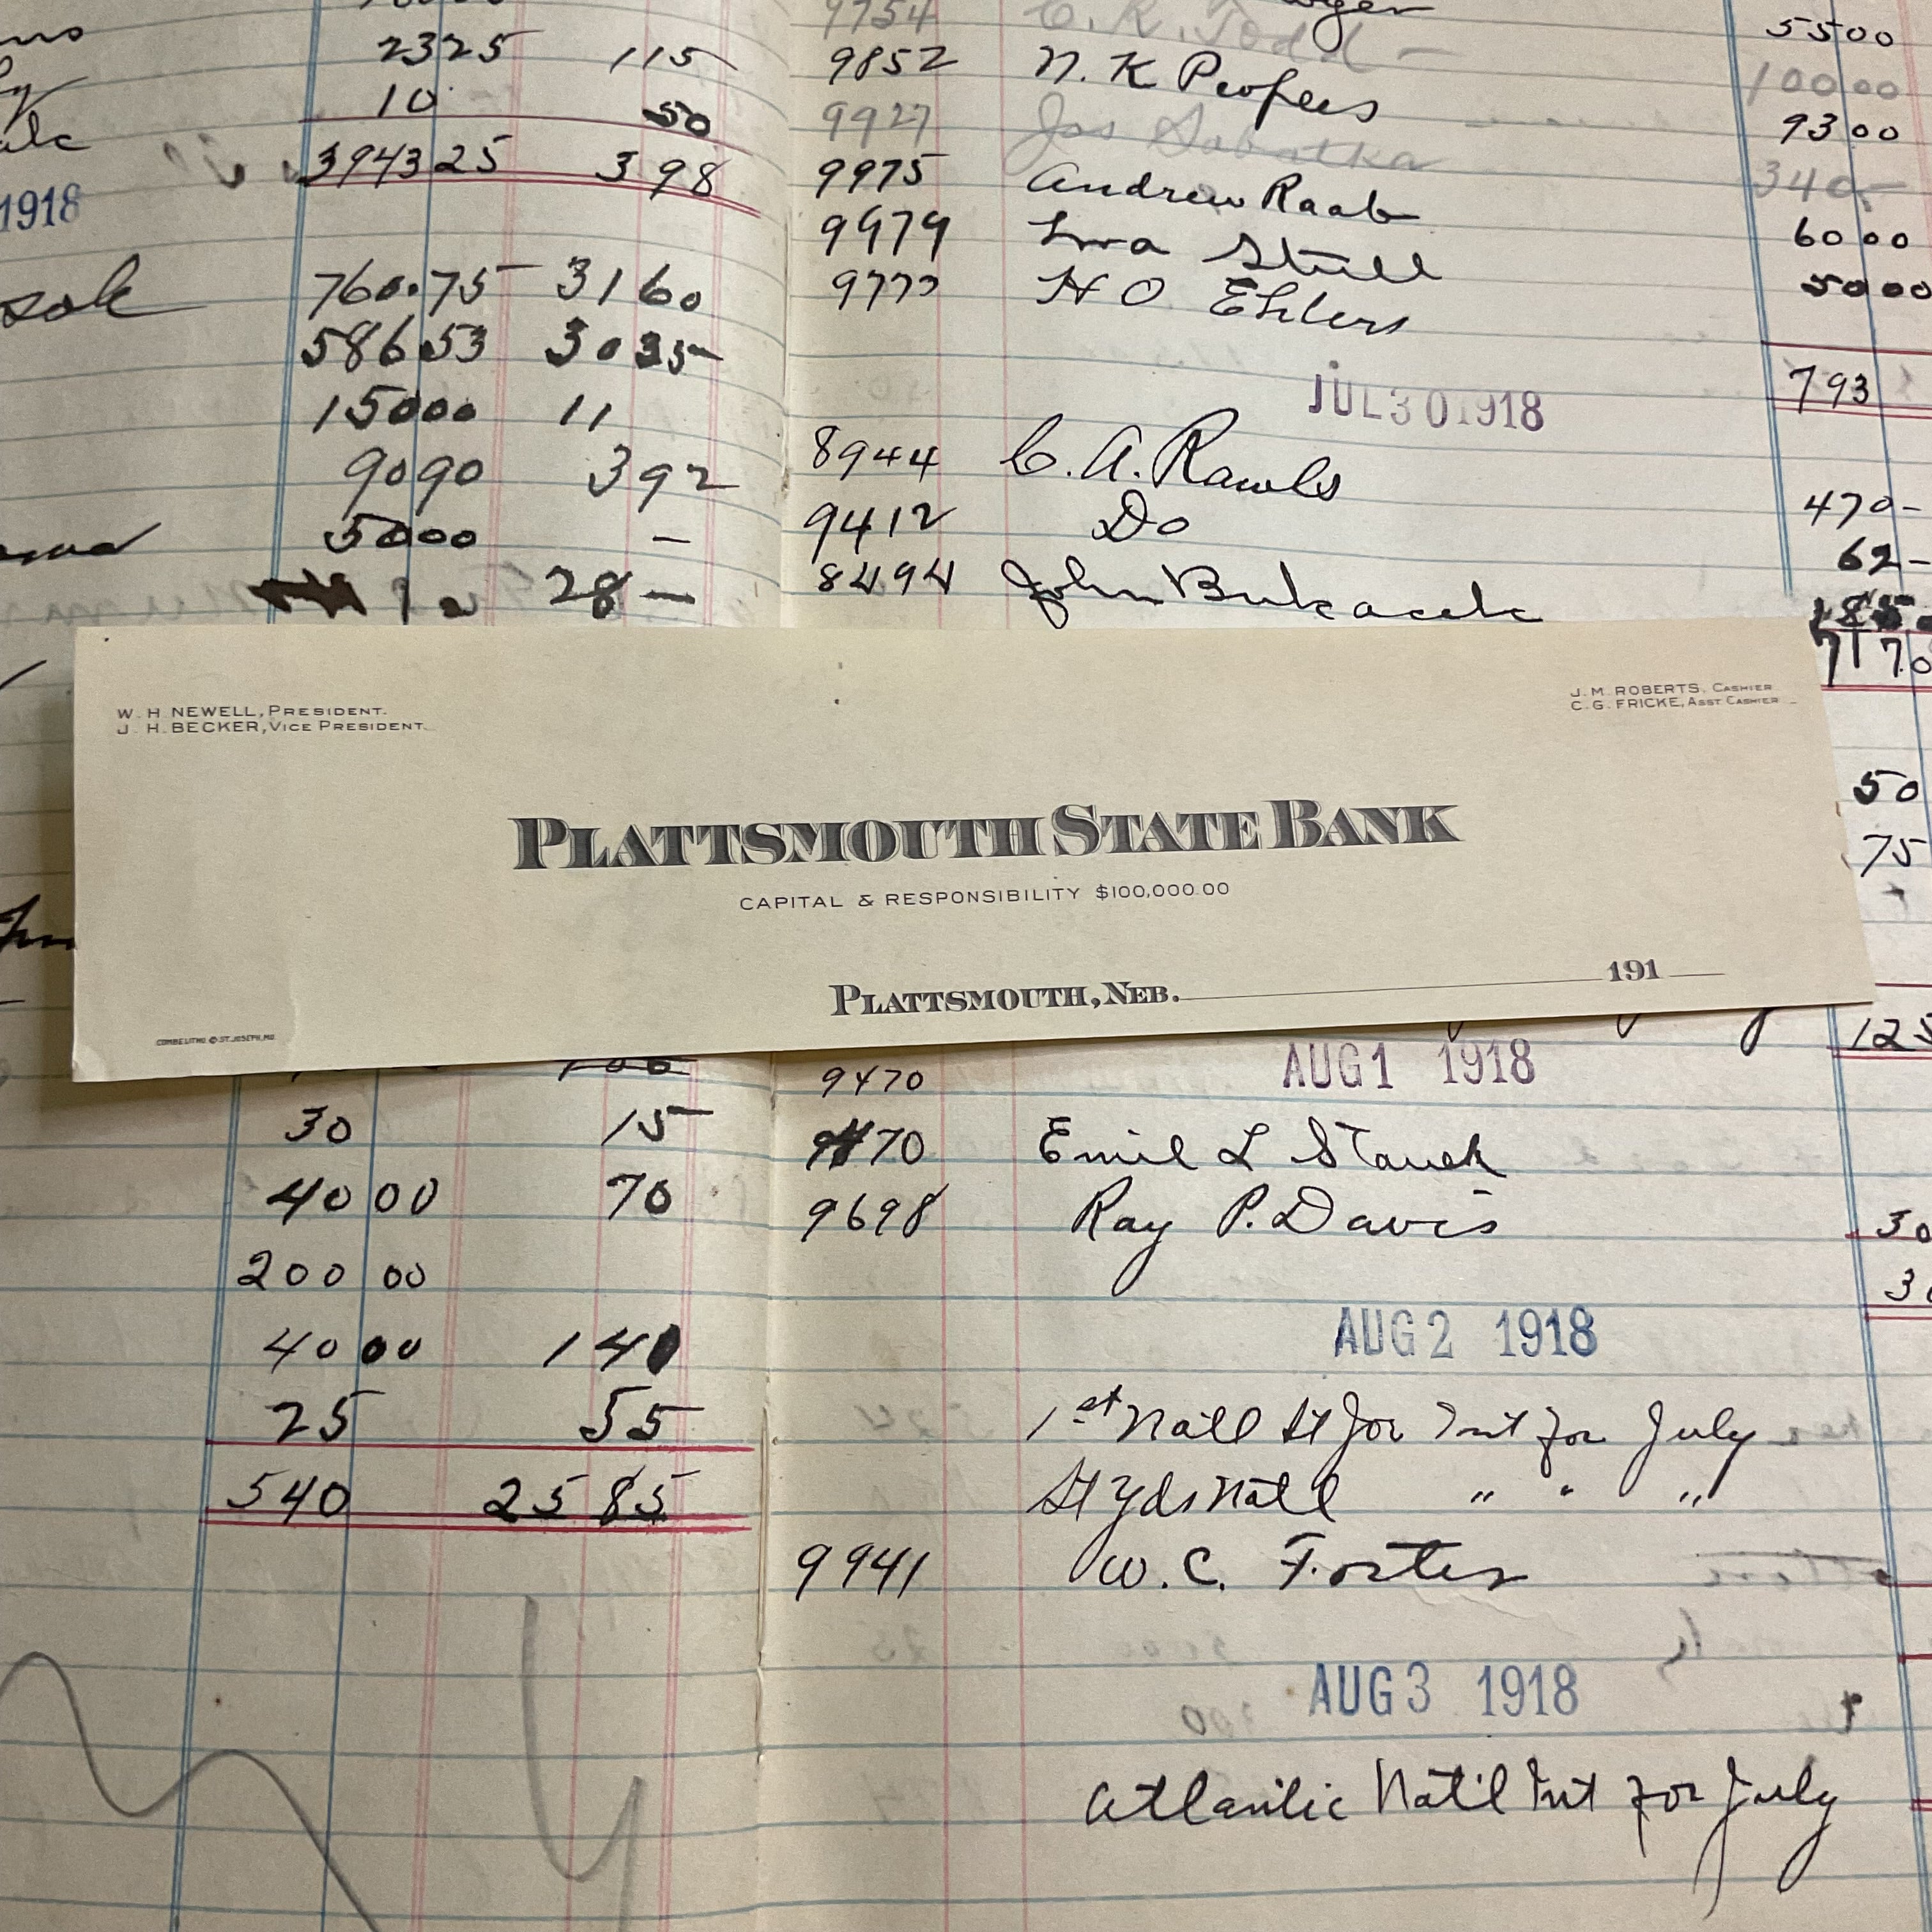 2325 115
10 50
394325 398
1918
760.75 3160
58653 3035
15000 11
9090 392
5000 –
28 –
9754 C. R. Todd –
5500
9852 N. K Peoples
10000
9927 Jos Sabatka
9300
9975 Andrew Raab
340.-
9979 Stull
6000
9777 H O Ehlers
5000
793
JUL 30 1918
8944 C. A. Rawls 470-
9412 Do 62-
8494 John Bukacek
7170
W. H. NEWELL, PRESIDENT.
J. H. BECKER, VICE PRESIDENT.
J. M. ROBERTS, CASHIER
C. G. FRICKE, ASST CASHIER
PLATTSMOUTH STATE BANK
CAPITAL & RESPONSIBILITY $100,000.00
PLATTSMOUTH, NEB. 191
COMBE LITHO © ST. JOSEPH, MO.
50
75
125
30 15
4000 70
20000
4000 140
25 55
540 2585
AUG 1 1918
9470
9470 Emil L
9698 Ray P. Davis
30
AUG 2 1918
1st Nat'l St Jo Int for July
Nat'l " " "
9941 W. C. Foster
AUG 3 1918
Atlantic Nat'l Int for July